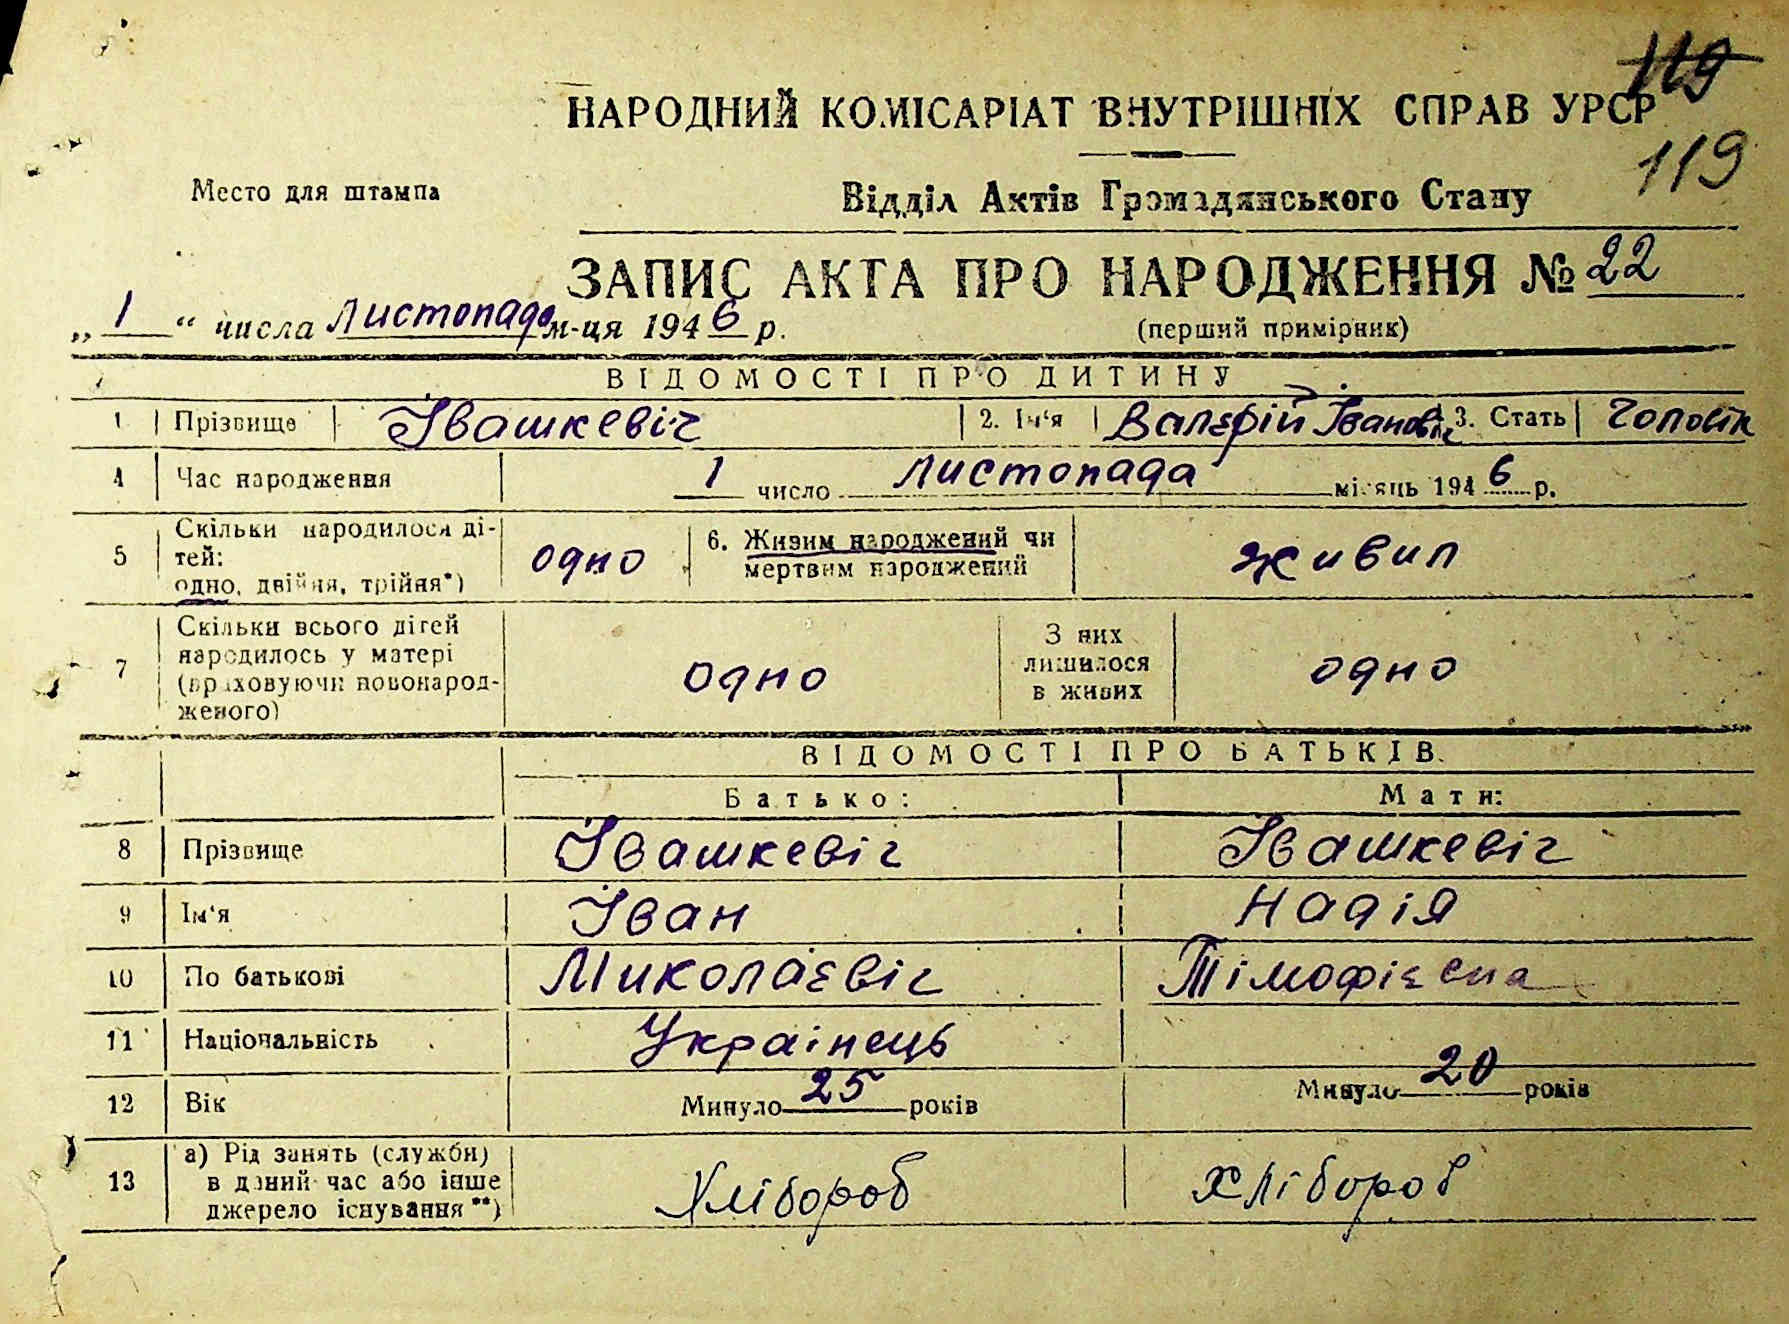 119
НАРОДНИЙ КОМІСАРІАТ ВНУТРІШНІХ СПРАВ УРСР
119
Место для штампа
Відділ Актів Громадянського Стану
ЗАПИС АКТА ПРО НАРОДЖЕННЯ № 22
„ 1 “ числа Листопада м-ця 1946 р.
(перший примірник)
ВІДОМОСТІ ПРО ДИТИНУ
1 Прізвище Івашкевіч 2. Ім‘я Валєрій Івановіч 3. Стать Чоловік
4 Час народження 1 число Листопада місяць 1946 р.
5 Скільки народилося ді-
тей:
одно, двійня, трійня*) одно
6. Живим народжений чи
мертвим народжений живил
7 Скільки всього дітей
народилось у матері
(враховуючи новонарод-
женого) одно
З них
лишилося
в живих одно
ВІДОМОСТІ ПРО БАТЬКІВ
Батько: Мати:
8 Прізвище Івашкевіч Івашкевіч
9 Ім‘я Іван Надія
10 По батькові Миколаєвіч Тімофієвна
11 Національність Українець
12 Вік Минуло 25 років Минуло 20 років
13 а) Рід занять (служби)
в даний час або інше
джерело існування**) Хлібороб хлібороб